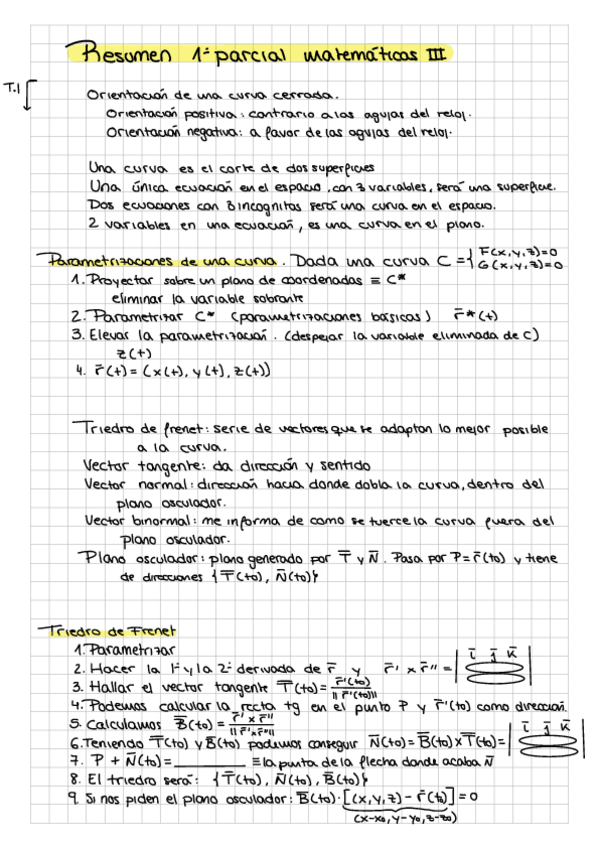 Resumen 1er parcial matemáticas III
T.1
Orientación de una curva cerrada.
Orientación positiva: contrario a las agujas del reloj.
Orientación negativa: a favor de las agujas del reloj.
Una curva es el corte de dos superficies
Una única ecuación en el espacio, con 3 variables, será una superficie.
Dos ecuaciones con 3 incognitas será una curva en el espacio.
2 variables en una ecuación, es una curva en el plano.
Parametrizaciones de una curva. Dada una curva C = { F(x,y,z)=0
G(x,y,z)=0
1. Proyectar sobre un plano de coordenadas ≡ C*
eliminar la variable sobrante
2. Parametrizar C* (parametrizaciones básicas) r̄*(t)
3. Elevar la parametrización. (despejar la variable eliminada de C)
z(t)
4. r̄(t) = (x(t), y(t), z(t))
Triedro de frenet: serie de vectores que se adaptan lo mejor posible
a la curva.
Vector tangente: da dirección y sentido
Vector normal: dirección hacia donde dobla la curva, dentro del
plano osculador.
Vector binormal: me informa de como se tuerce la curva fuera del
plano osculador.
Plano osculador: plano generado por T̄ y N̄. Pasa por P=r̄(to) y tiene
de direcciones {T̄(to), N̄(to)}
Triedro de Frenet
1. Parametrizar
2. Hacer la 1ª y la 2ª derivada de r̄ y r̄' x r̄'' = | ī j̄ k̄ |
3. Hallar el vector tangente T̄(to) = r̄'(to) / ||r̄'(to)||
4. Podemos calcular la recta tg en el punto P y r̄'(to) como dirección.
5. Calculamos B̄(to) = r̄' x r̄'' / ||r̄' x r̄''||
6. Teniendo T̄(to) y B̄(to) podemos conseguir N̄(to) = B̄(to) x T̄(to) = | ī j̄ k̄ |
7. P + N̄(to) = __________ ≡ la punta de la flecha donde acaba N̄
8. El triedro será: {T̄(to), N̄(to), B̄(to)}
9. Si nos piden el plano osculador: B̄(to) · [(x,y,z) - r̄(to)] = 0
(x-xo, y-yo, z-zo)